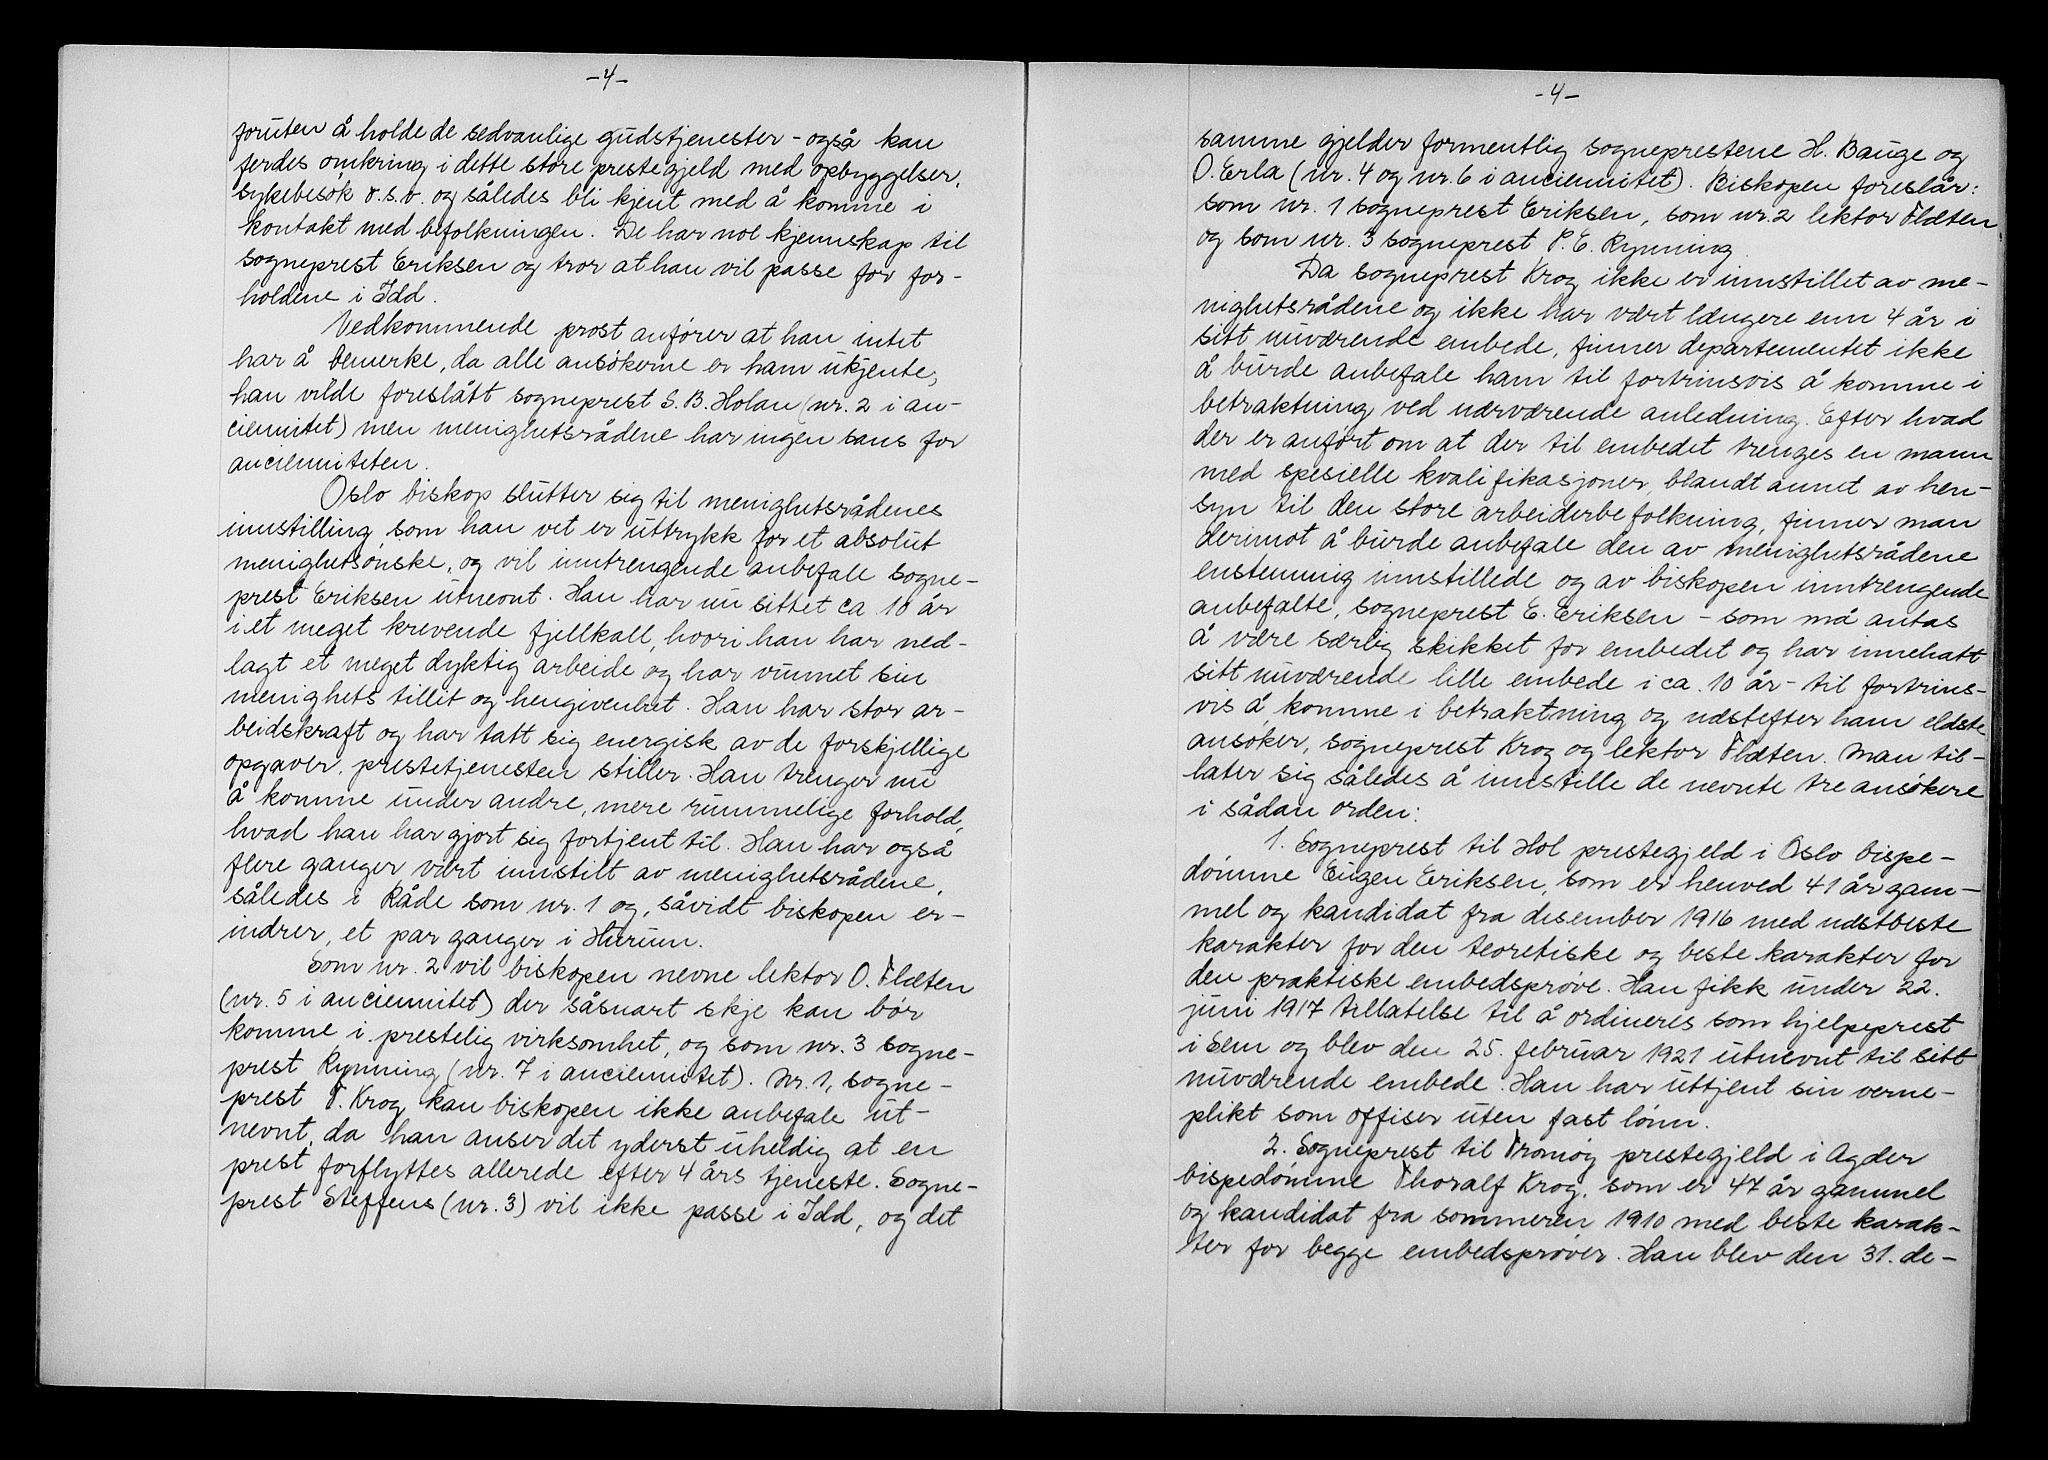 -4-
foruten å holde de sedvanlige gudstjenester - også kan
ferdes omkring i dette store prestegjeld med opbyggelser,
sykebesök o.s.v. og således bli kjent med å komme i
kontakt med befolkningen. De har nol kjennskap til
sogneprest Eriksen og tror at han vil passe for for-
holdene i Idd.
Vedkommende prost anförer at han intet
har å bemerke, da alle ansökerne er ham ukjente,
han vilde foreslått sogneprest S.B. Holan (nr. 2 i an-
ciennitet) men menighetsrådene har ingen sans for
ancienniteten.
Oslo biskop slutter sig til menighetsrådenes
innstilling som han vet er uttrykk for et absolut
menighetsönske, og vil inntrengende anbefale sogne-
prest Eriksen utnevnt. Han har nu sittet ca. 10 år
i et meget krevende fjellkall, hvori han har ned-
lagt et meget dyktig arbeide og har vunnet sin
menighets tillit og hengivenhet. Han har stor ar-
beidskraft og har tatt sig energisk av de forskjellige
opgaver, prestetjenesten stiller. Han trenger nu
å komme under andre, mere rummelige forhold,
hvad han har gjort sig fortjent til. Han har også
flere ganger vært innstilt av menighetsrådene,
således i Råde som nr. 1 og, såvidt biskopen er-
indrer, et par ganger i Hurum.
Som nr. 2 vil biskopen nevne lektor O. Flæten
(nr. 5 i anciennitet) der såsnart skje kan bör
komme i prestelig virksomhet, og som nr. 3 sogne-
prest Rynning (nr. 7 i anciennitet). Nr. 1, sogne-
prest T. Krog kan biskopen ikke anbefale ut-
nevnt, da han anser det yderst uheldig at en
prest forflyttes allerede efter 4 års tjeneste. Sogne-
prest Steffens (nr. 3) vil ikke passe i Idd, og det
-4-
samme gjelder formentlig sogneprestene H. Bauge og
O. Erla (nr. 4 og nr. 6 i anciennitet). Biskopen foreslår:
som nr. 1 sogneprest Eriksen, som nr. 2 lektor Flæten
og som nr. 3 sogneprest P. E. Rynning.
Da sogneprest Krog ikke er innstillet av me-
nighetsrådene og ikke har vært længere enn 4 år i
sitt nuværende embede, finner departementet ikke
å burde anbefale ham til fortrinsvis å komme i
betraktning ved nærværende anledning. Efter hvad
der er anfört om at der til embedet trenges en mann
med spesielle kvalifikasjoner, blandt annet av hen-
syn til den store arbeiderbefolkning, finner man
derimot å burde anbefale den av menighetsrådene
enstemmig innstillede og av biskopen inntrengende
anbefalte, sogneprest E. Eriksen - som må antas
å være særlig skikket for embedet og har innehatt
sitt nuværende lille embede i ca. 10 år - til fortrins-
vis å komme i betraktning og næstefter ham eldste
ansöker, sogneprest Krog og lektor Flæten. Man til-
later sig således å innstille de nevnte tre ansökere
i sådan orden:
1. Sogneprest til Hol prestegjeld i Oslo bispe-
dömme Eugen Eriksen, som er henved 41 år gam-
mel og kandidat fra desember 1916 med næstbeste
karakter for den teoretiske og beste karakter for
den praktiske embedsprøve. Han fikk under 22.
juni 1917 tillatelse til å ordineres som hjelpeprest
i Sem og blev den 25. februar 1921 utnevnt til sitt
nuværende embede. Han har uttjent sin verne-
plikt som offiser uten fast lönn.
2. Sogneprest til Tromøy prestegjeld i Agder
bispedömme Thoralf Krog, som er 47 år gammel
og kandidat fra sommeren 1910 med beste karak-
ter for begge embedsprøver. Han blev den 31. de-